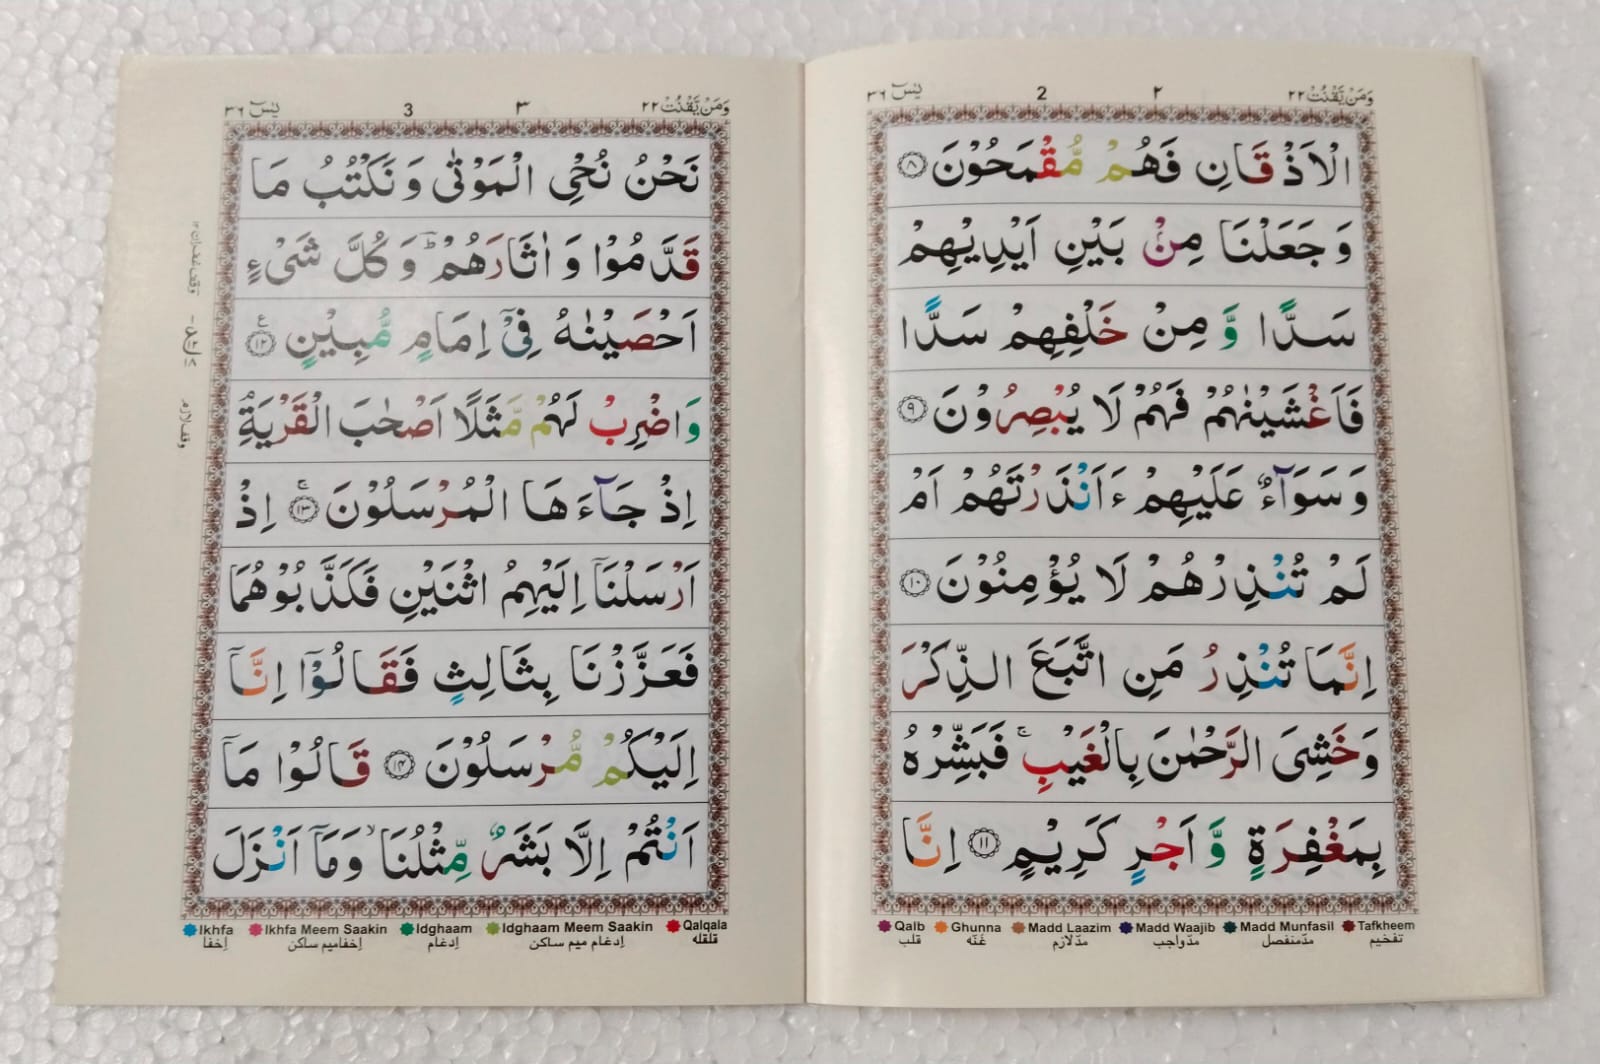 وَمَنۡ يَّقۡنُتۡ ٢٢
٢
2
يٰسٓ ٣٦
الۡاَذۡقَانِ فَهُمۡ مُّقۡمَحُوۡنَ ﴿٨﴾
وَجَعَلۡنَا مِنۡۢ بَيۡنِ اَيۡدِيۡهِمۡ
سَدًّا وَّمِنۡ خَلۡفِهِمۡ سَدًّا
فَاَغۡشَيۡنٰهُمۡ فَهُمۡ لَا يُبۡصِرُوۡنَ ﴿٩﴾
وَسَوَآءٌ عَلَيۡهِمۡ ءَاَنۡذَرۡتَهُمۡ اَمۡ
لَمۡ تُنۡذِرۡهُمۡ لَا يُؤۡمِنُوۡنَ ﴿١٠﴾
اِنَّمَا تُنۡذِرُ مَنِ اتَّبَعَ الذِّكۡرَ
وَخَشِىَ الرَّحۡمٰنَ بِالۡغَيۡبِۚ فَبَشِّرۡهُ
بِمَغۡفِرَةٍ وَّاَجۡرٍ كَرِيۡمٍ ﴿١١﴾ اِنَّا
Qalb Ghunna Madd Laazim Madd Waajib Madd Munfasil Tafkheem
قلب غُنّه مدّلازم مدّواجب مدّمنفصل تفخيم
وَمَنۡ يَّقۡنُتۡ ٢٢
٣
3
يٰسٓ ٣٦
نَحۡنُ نُحۡىِ الۡمَوۡتٰى وَنَكۡتُبُ مَا
قَدَّمُوۡا وَاٰثَارَهُمۡؕ وَكُلَّ شَىۡءٍ
اَحۡصَيۡنٰهُ فِىۡۤ اِمَامٍ مُّبِيۡنٍ ﴿١٢﴾ ع
وَاضۡرِبۡ لَهُمۡ مَّثَلًا اَصۡحٰبَ الۡقَرۡيَةِ
اِذۡ جَآءَهَا الۡمُرۡسَلُوۡنَ ﴿١٣﴾ۚ اِذۡ
اَرۡسَلۡنَاۤ اِلَيۡهِمُ اثۡنَيۡنِ فَكَذَّبُوۡهُمَا
فَعَزَّزۡنَا بِثَالِثٍ فَقَالُوۡۤا اِنَّاۤ
اِلَيۡكُمۡ مُّرۡسَلُوۡنَ ﴿١٤﴾ قَالُوۡا مَاۤ
اَنۡتُمۡ اِلَّا بَشَرٌ مِّثۡلُنَاۙ وَمَاۤ اَنۡزَلَ
Ikhfa Ikhfa Meem Saakin Idghaam Idghaam Meem Saakin Qalqala
اِخفا اِخفاميم ساكن اِدغام اِدغام ميم ساكن قلقله